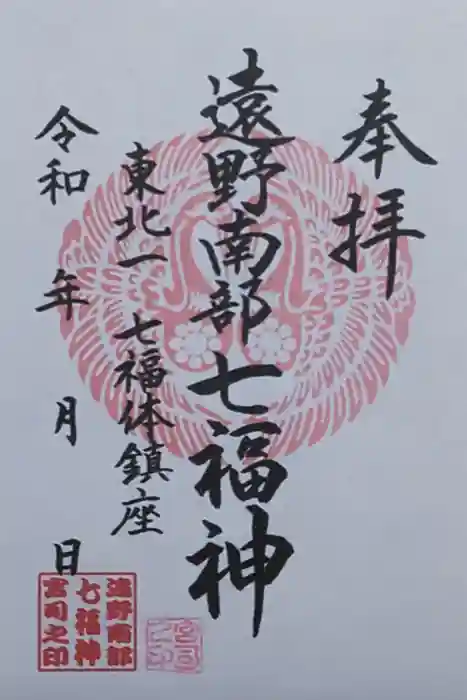 奉拝
遠野南部七福神
東北一 七福体鎮座
令和 年 月 日
遠野南部
七福神
宮司之印
宮司
之印